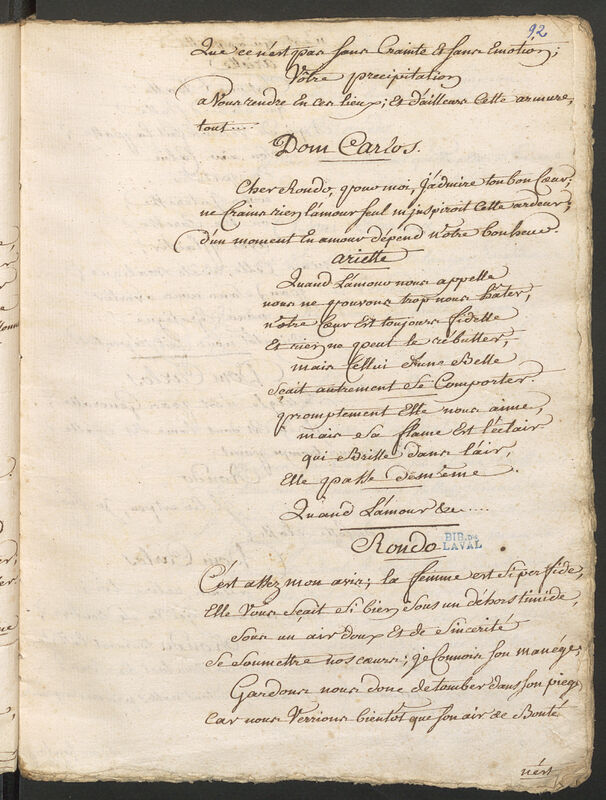 92
Que ce n'est pas sans Crainte Et sans Emotion;
Vôtre precipitation
a Vous rendre En ces lieux; Et d'ailleurs Cette armure,
tout....
Dom Carlos.
Cher Rondo, quoi moi, j'admire ton bon Cœur;
ne Crains rien l'amour seul m'inspiroit Cette ardeur;
D'un moment En amour dépend nôtre bonheur
ariette
Quand L'amour nous appelle
nous ne pouvons trop nous hâter,
nôtre Cœur Est toujours fidelle
Et rien ne peut le rébutter,
mais Cellui d'une Belle
Sçait autrement se Comporter.
promptement Elle nous aime,
mais sa flame Est l'éclair
qui Brille dans l'air,
Elle passe demême
Quand L'amour &c....
Rondo
BIB. DE
LAVAL
C'est assez mon avis; la femme est si perfide,
Elle Vous Sçait Si bien, sous un déhors timide,
Sous un air doux Et de Sincerité
Se soumettre nos cœurs; je Connois son manége;
Gardons nous donc de tomber dans son piege
Car nous Verrions bientôt que son air de Bonté
n'ést